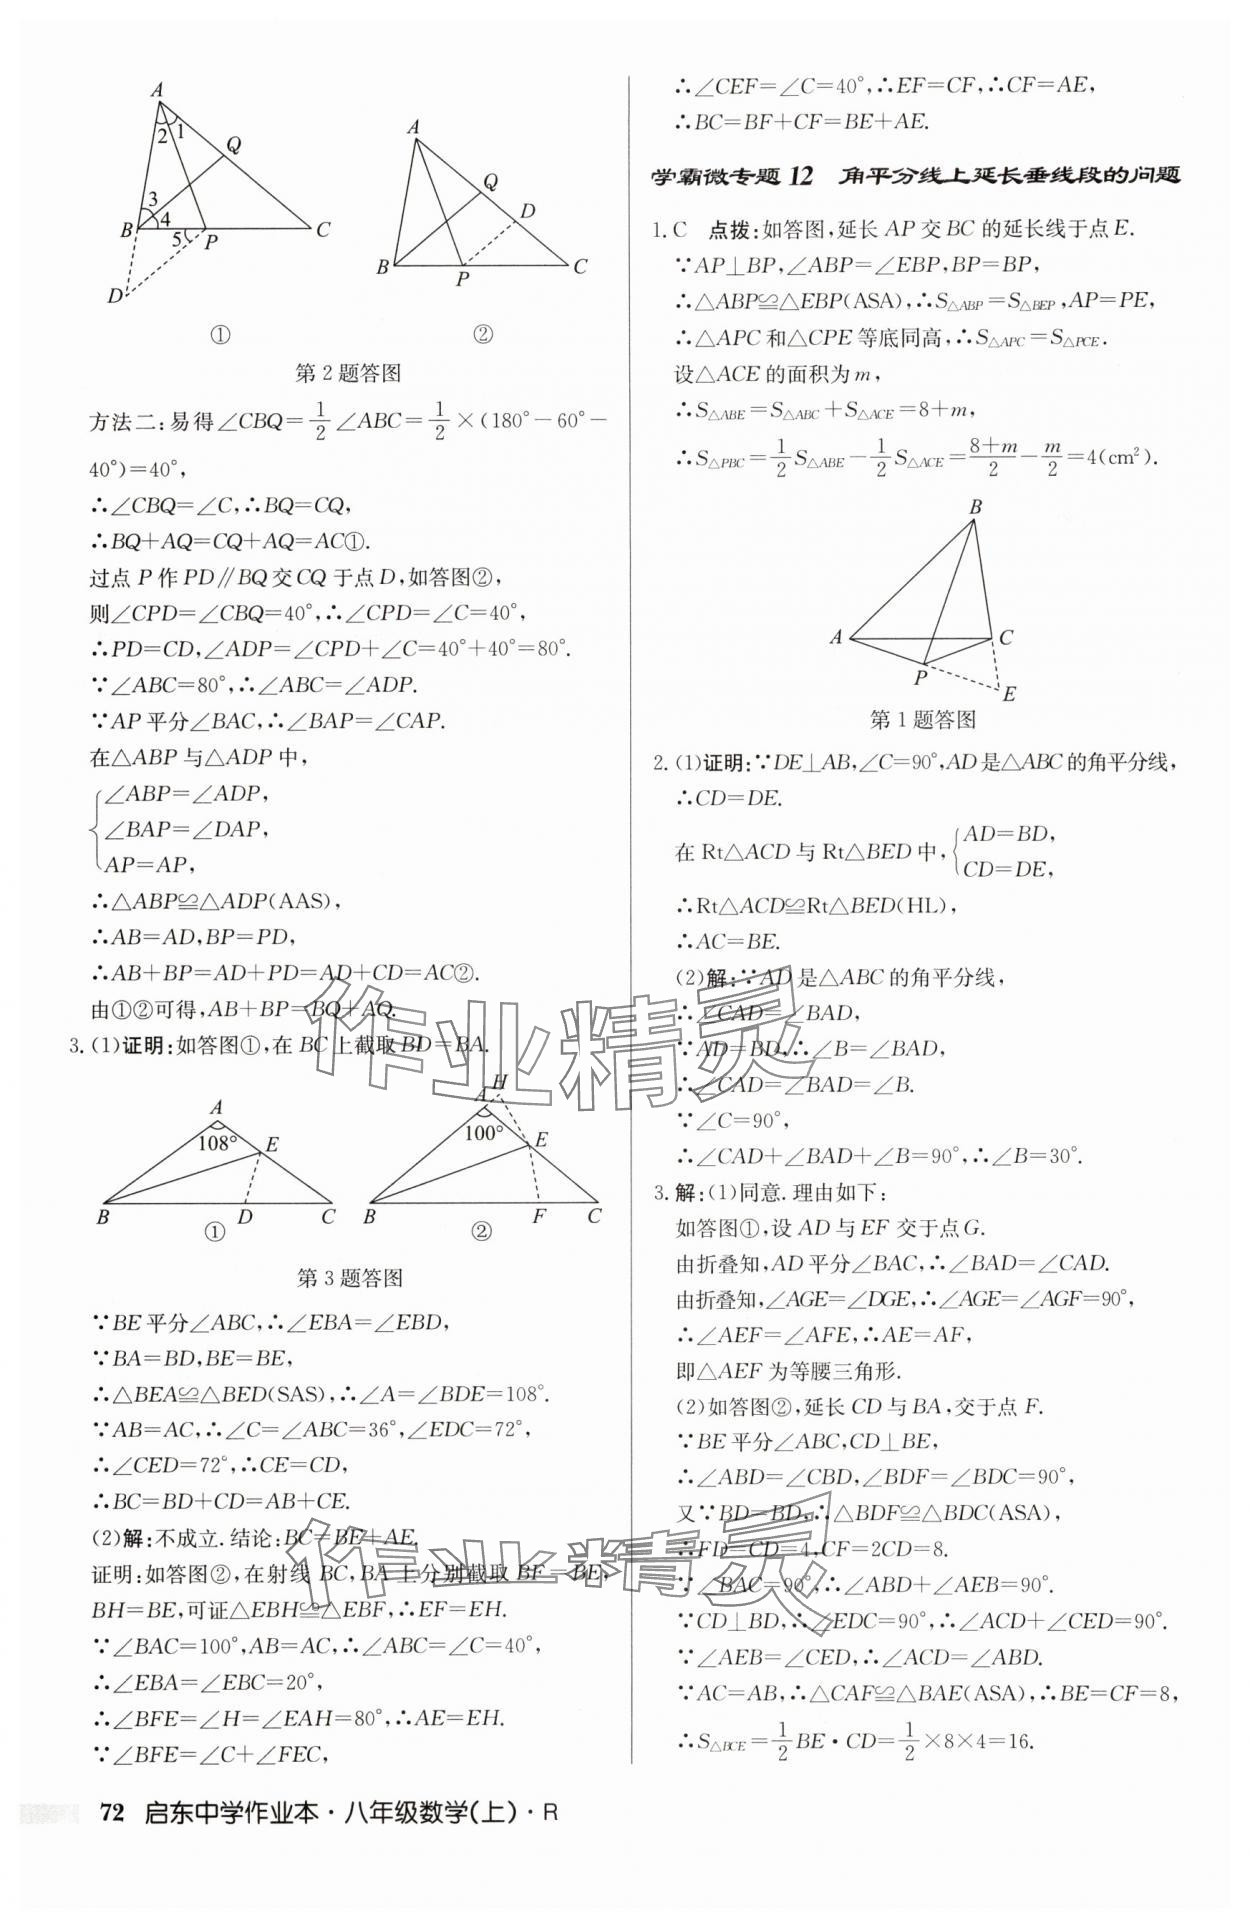 A
2
1
Q
3
4
B
5
P
C
D
①
A
Q
D
B
P
C
②
第2题答图
方法二:易得∠CBQ=1/2∠ABC=1/2×(180°-60°-
40°)=40°,
∴∠CBQ=∠C,∴BQ=CQ,
∴BQ+AQ=CQ+AQ=AC①.
过点P作PD∥BQ交CQ于点D,如答图②,
则∠CPD=∠CBQ=40°,∴∠CPD=∠C=40°,
∴PD=CD,∠ADP=∠CPD+∠C=40°+40°=80°.
∵∠ABC=80°,∴∠ABC=∠ADP.
∵AP平分∠BAC,∴∠BAP=∠CAP.
在△ABP与△ADP中,
{∠ABP=∠ADP,
∠BAP=∠DAP,
AP=AP,
∴△ABP≌△ADP(AAS),
∴AB=AD,BP=PD,
∴AB+BP=AD+PD=AD+CD=AC②.
由①②可得,AB+BP=BQ+AQ.
3.(1)证明:如答图①,在BC上截取BD=BA.
A
108°
E
B
D
C
①
H
A
100°
E
B
F
C
②
第3题答图
∵BE平分∠ABC,∴∠EBA=∠EBD,
∵BA=BD,BE=BE,
∴△BEA≌△BED(SAS),∴∠A=∠BDE=108°.
∵AB=AC,∴∠C=∠ABC=36°,∠EDC=72°,
∴∠CED=72°,∴CE=CD,
∴BC=BD+CD=AB+CE.
(2)解:不成立.结论:BC=BE+AE.
证明:如答图②,在射线BC,BA上分别截取BF=BE,
BH=BE,可证△EBH≌△EBF,∴EF=EH.
∵∠BAC=100°,AB=AC,∴∠ABC=∠C=40°,
∴∠EBA=∠EBC=20°,
∴∠BFE=∠H=∠EAH=80°,∴AE=EH.
∵∠BFE=∠C+∠FEC,
∴∠CEF=∠C=40°,∴EF=CF,∴CF=AE,
∴BC=BF+CF=BE+AE.
学霸微专题12 角平分线上延长垂线段的问题
1.C 点拨:如答图,延长AP交BC的延长线于点E.
∵AP⊥BP,∠ABP=∠EBP,BP=BP,
∴△ABP≌△EBP(ASA),∴S△ABP=S△BEP,AP=PE,
∴△APC和△CPE等底同高,∴S△APC=S△PCE.
设△ACE的面积为m,
∴S△ABE=S△ABC+S△ACE=8+m,
∴S△PBC=1/2S△ABE-1/2S△ACE=(8+m)/2-m/2=4(cm²).
B
A
C
P
E
第1题答图
2.(1)证明:∵DE⊥AB,∠C=90°,AD是△ABC的角平分线,
∴CD=DE.
在Rt△ACD与Rt△BED中,{AD=BD,
CD=DE,
∴Rt△ACD≌Rt△BED(HL),
∴AC=BE.
(2)解:∵AD是△ABC的角平分线,
∴∠CAD=∠BAD,
∵AD=BD,∴∠B=∠BAD,
∴∠CAD=∠BAD=∠B.
∵∠C=90°,
∴∠CAD+∠BAD+∠B=90°,∴∠B=30°.
3.解:(1)同意.理由如下:
如答图①,设AD与EF交于点G.
由折叠知,AD平分∠BAC,∴∠BAD=∠CAD.
由折叠知,∠AGE=∠DGE,∴∠AGE=∠AGF=90°,
∴∠AEF=∠AFE,∴AE=AF,
即△AEF为等腰三角形.
(2)如答图②,延长CD与BA,交于点F.
∵BE平分∠ABC,CD⊥BE,
∴∠ABD=∠CBD,∠BDF=∠BDC=90°,
又∵BD=BD,∴△BDF≌△BDC(ASA),
∴FD=CD=4,CF=2CD=8.
∵∠BAC=90°,∴∠ABD+∠AEB=90°.
∵CD⊥BD,∴∠EDC=90°,∴∠ACD+∠CED=90°.
∵∠AEB=∠CED,∴∠ACD=∠ABD.
∵AC=AB,∴△CAF≌△BAE(ASA),∴BE=CF=8,
∴S△BCE=1/2BE·CD=1/2×8×4=16.
作业精灵
作业精灵
72 启东中学作业本·八年级数学(上)·R